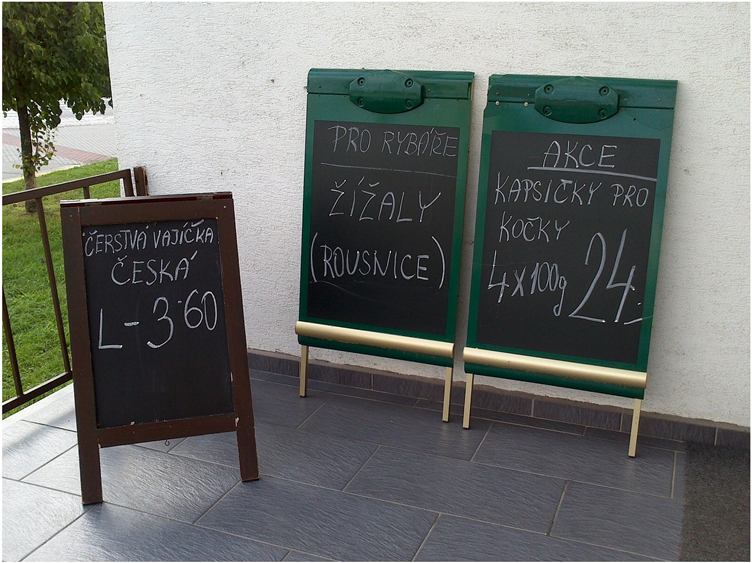 ČERSTVÁ VAJÍČKA
ČESKÁ
L-3.60
PRO RYBÁŘE
ŽÍŽALY
(ROUSNICE)
AKCE
KAPSIČKY PRO
KOČKY
4x100g 24.-